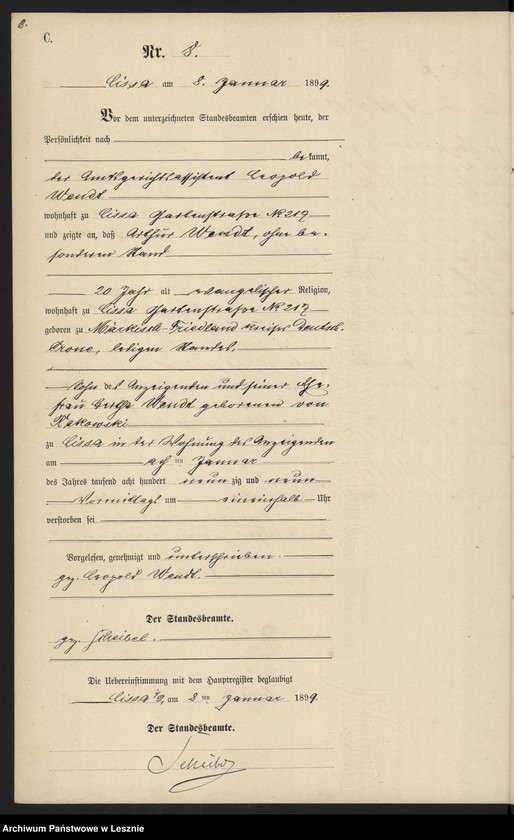 8.
C.
Nr. 8.
Lissa am 8. Januar 1899.
Vor dem unterzeichneten Standesbeamten erschien heute, der
Persönlichkeit nach
bekannt,
der Amtsgerichtsassistent Leopold
Wendt
wohnhaft zu Lissa Gartenstraße № 217
und zeigte an, daß Arthur Wendt, ohne be-
sonderen Stand
20 Jahr alt evangelischer Religion,
wohnhaft zu Lissa Gartenstraße № 217
geboren zu Märkisch-Friedland Kreises Deutsch-
Crone, ledigen Standes,
Sohn des Anzeigenden und seiner Ehe-
frau Wendt geborenen von
zu Lissa in der Wohnung des Anzeigenden
am acht ten Januar
des Jahres tausend acht hundert neun zig und neun
Vormittags um eineinhalb Uhr
verstorben sei
Vorgelesen, genehmigt und unterschrieben
gez. Leopold Wendt.
Der Standesbeamte.
gez. Scheibel.
Die Uebereinstimmung mit dem Hauptregister beglaubigt
Lissa am 8 ten Januar 1899.
Der Standesbeamte.
Scheibel
Archiwum Państwowe w Lesznie